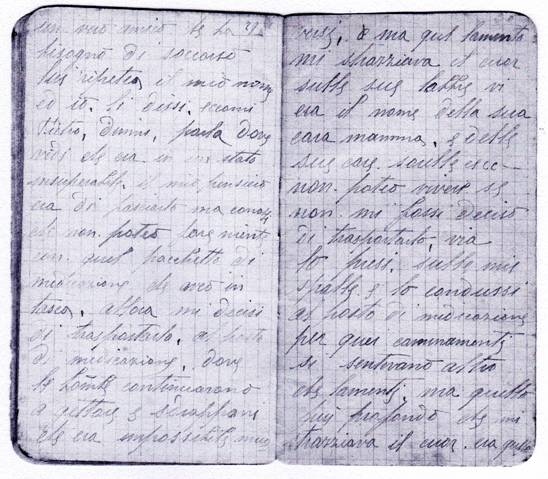 un vero amico che ha
bisogno di soccorso
lui ripeteva il mio nome
ed io. li dissi. eccomi
Pietro, dimmi, parla dove
vidi che era in un stato
insuperabile. il mio pensiero
era di fasciarlo ma conos
che non poteo fare niente
con quel pacchetto di
medicazione che aveo in
tasca, allora mi decisi
di trasportarlo, al posto
di medicazione, dove
le bombe continuarono
a gettare e scoppiare
che era impossibile
ma quel lamento
mi strazziava il cuor
sulle sue labbre vi
era il nome della sua
cara mamma, e delle
sue care sorelle ecc
non poteo vivere se
non mi fossi deciso
di trasportarlo, via
lo presi. sulle mie
spalle e lo condussi
al posto di medicazione
per quei camminamenti
si sentivano altro
che lamenti, ma quello
più profondo che mi
trazziava il cuor. era quello